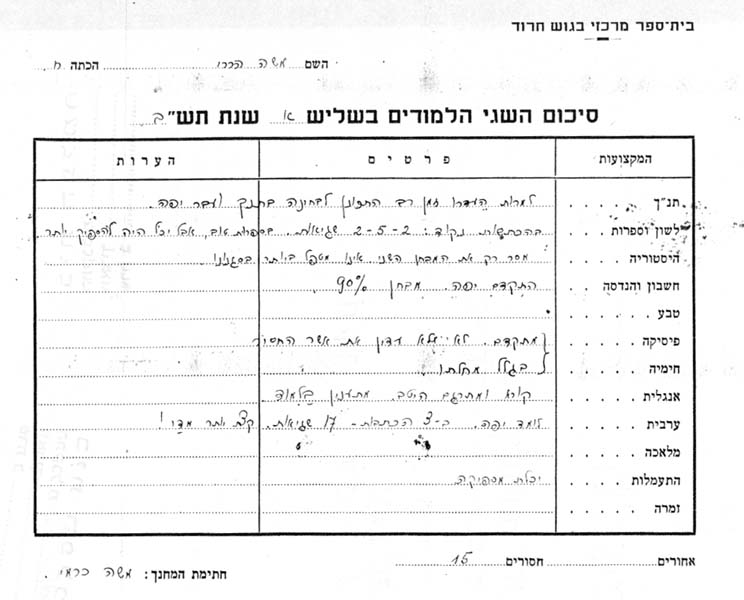 בית-ספר מרכזי בגוש חרוד
השם משה הררי הכתה ח
סיכום השגי הלמודים בשליש א שנת תש"ב
המקצועות פרטים הערות
תנ"ך . . . . . למרות העדרו זמן רב התכונן לבחינה בתנך ועבר יפה.
לשון וספרות . . . . בהכתבות נקוד: 2-5-2 שגיאות. בספרות טוב, אבל יכל היה להספיק יותר.
היסטוריה . . . . מסר רק את המבחן השני אינו מטפל ביותר בסגנונו
חשבון והנדסה . . . התקדם יפה. מבחן 90%
טבע . . . . . .
פיסיקה . . . . . מתקדם. לא מלא עדין את אשר החסיר
חימיה . . . . . בגלל מחלתו
אנגלית . . . . . קורא ומתרגם היטב. מתענין בלמוד
ערבית . . . . . לומד יפה. ב-3 הכתבות - 17 שגיאות. קצת יותר מדי!
מלאכה . . . . .
התעמלות . . . . יכלת מספיקה
זמרה . . . . .
אחורים חסורים 15
חתימת המחנך: משה כרמי.